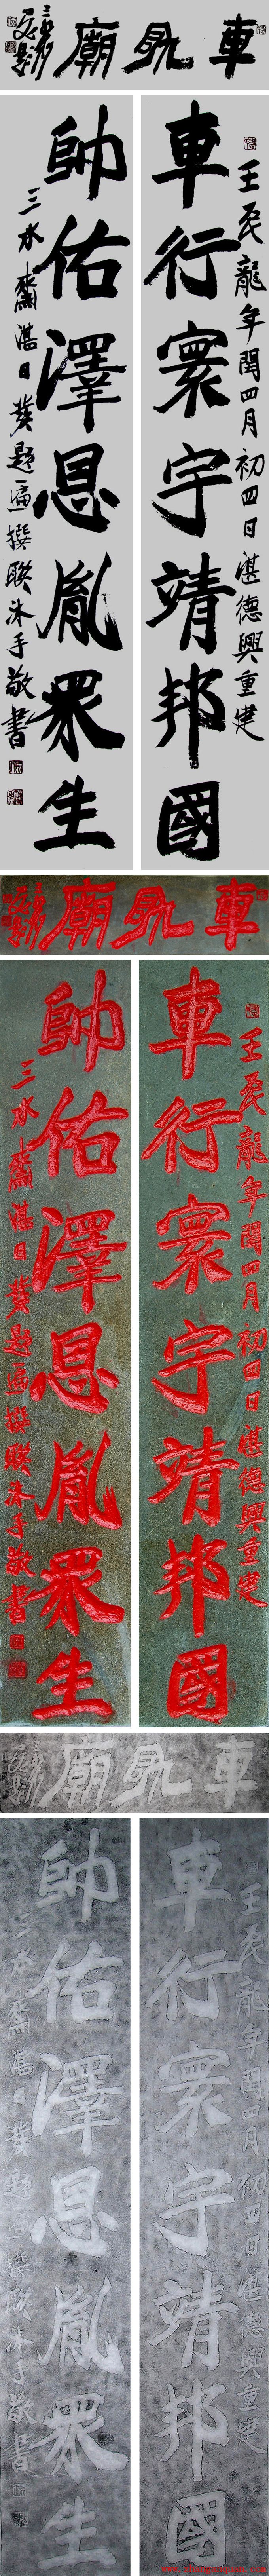 車帥廟
壬辰龍年閏四月初四日湛德興重建
車行寰宇靖邦國
帥佑澤恩胤眾生
三水肅湛日葵題匾撰聯沐手敬書
車帥廟
壬辰龍年閏四月初四日湛德興重建
車行寰宇靖邦國
帥佑澤恩胤眾生
三水肅湛日葵題匾撰聯沐手敬書
車帥廟
壬辰龍年閏四月初四日湛德興重建
車行寰宇靖邦國
帥佑澤恩胤眾生
三水肅湛日葵題匾撰聯沐手敬書